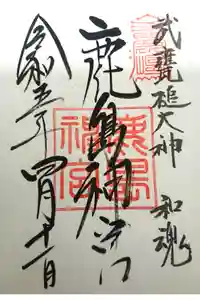 武甕槌大神 和魂
鹿島神宮
令和五年 四月十一日
鹿島神宮